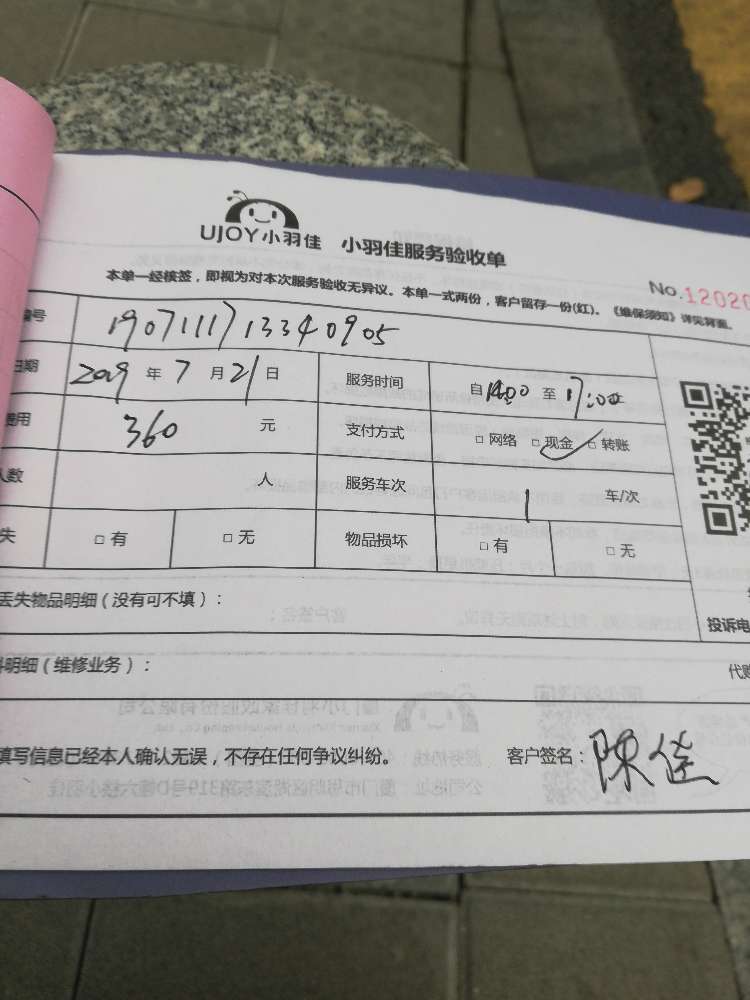 UJOY小羽佳 小羽佳服务验收单
No.12020
本单一经核签，即视为对本次服务验收无异议。本单一式两份，客户留存一份(红)。《维保须知》详见背面。
编号 1907111713340905
日期 2019 年 7 月 21 日 服务时间 自 14:00 至 17:00
费用 360 元 支付方式 □ 网络 □ 现金 □ 转账
人数 人 服务车次 1 车/次
失 □ 有 □ 无 物品损坏 □ 有 □ 无
丢失物品明细（没有可不填）：
投诉电
料明细（维修业务）：
代购
填写信息已经本人确认无误，不存在任何争议纠纷。 客户签名：陳佳